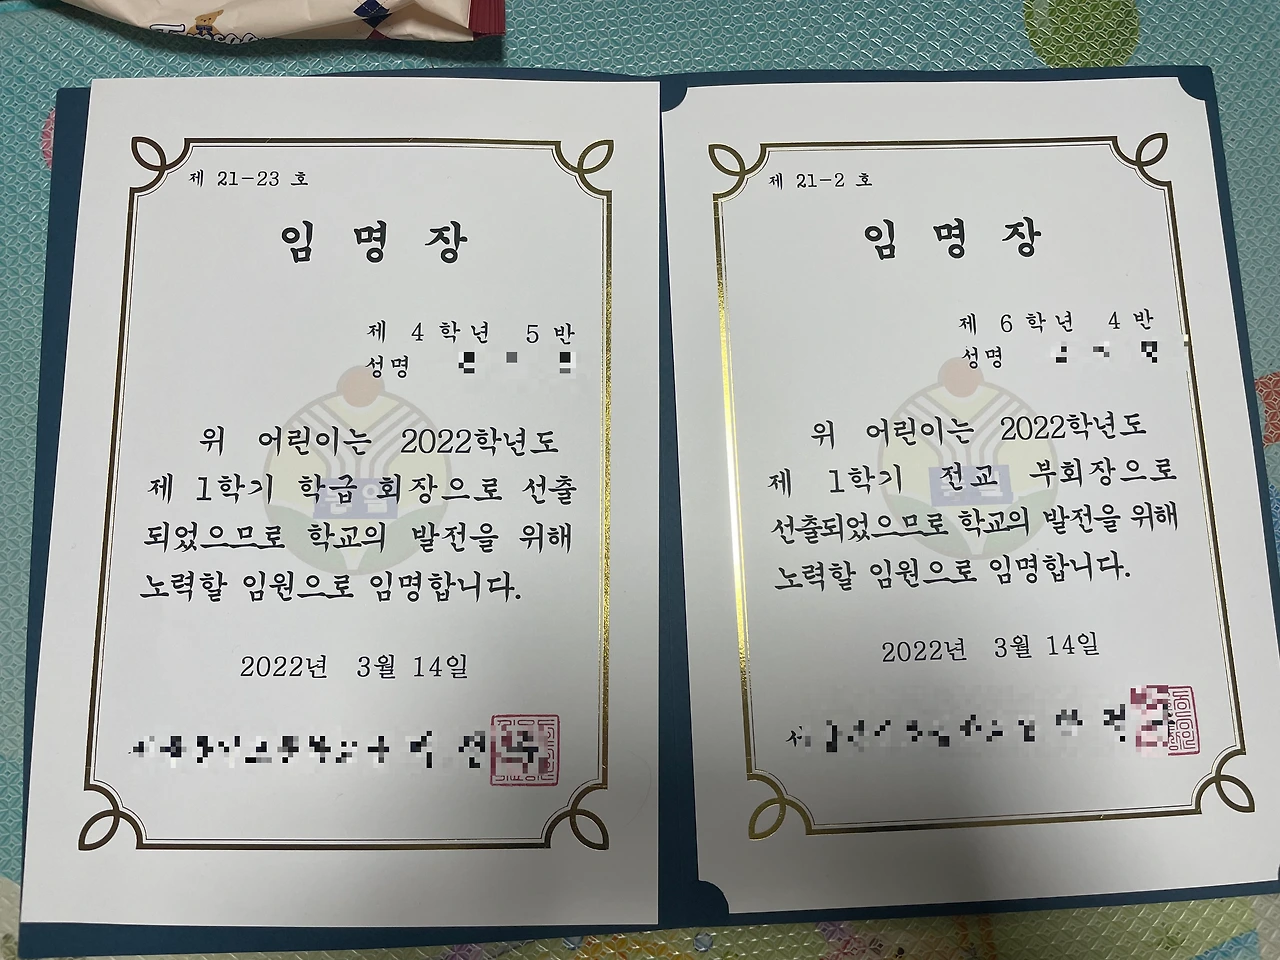 제 21-23 호
임 명 장
제 4 학 년 5 반
성명
위 어린이는 2022학년도
제 1학기 학급 회장으로 선출
되었으므로 학교의 발전을 위해
노력할 임원으로 임명합니다.
2022년 3월 14일
제 21-2 호
임 명 장
제 6 학 년 4 반
성명
위 어린이는 2022학년도
제 1학기 전교 부회장으로
선출되었으므로 학교의 발전을 위해
노력할 임원으로 임명합니다.
2022년 3월 14일